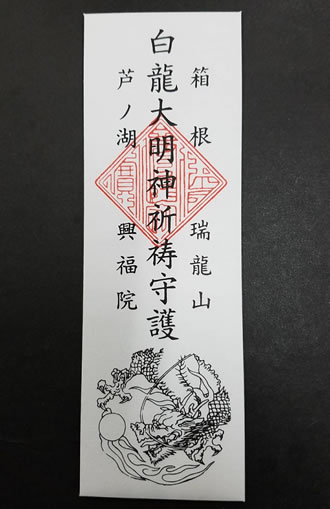 箱根 瑞龍山
白龍大明神祈祷守護
芦ノ湖 興福院